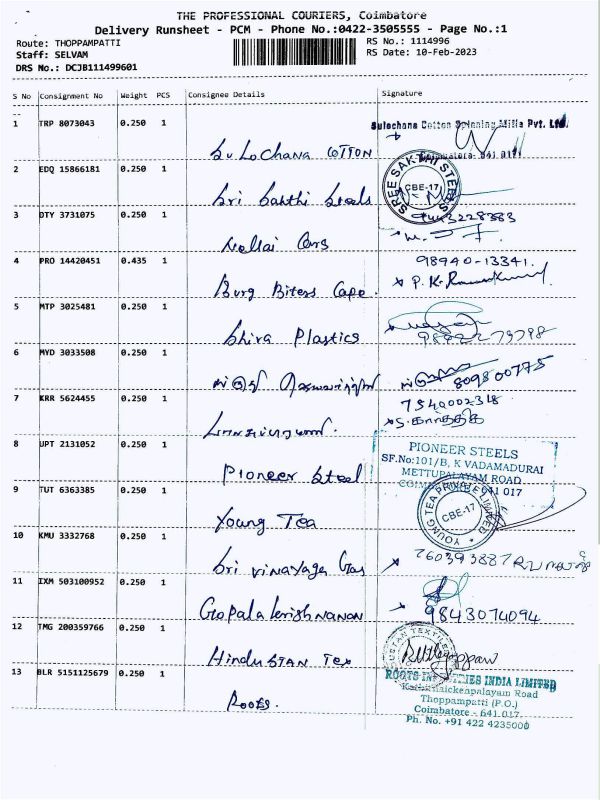 THE PROFESSIONAL COURIERS, Coimbatore
Delivery Runsheet - PCM - Phone No.:0422-3505555 - Page No.:1
Route: THOPPAMPATTI RS No.: 1114996
Staff: SELVAM RS Date: 10-Feb-2023
DRS No.: DCJB111499601
S No Consignment No Weight PCS Consignee Details Signature
1 TRP 8073043 0.250 1
Sulochana Cotton Spinning Mills Pvt. Ltd.
Coimbatore- 641 017
Sulochana COTTON
2 EDQ 15866181 0.250 1
SREE SAKTHI STEELS
CBE-17
Sri Sakthi Steels
3 DTY 3731075 0.250 1
9443228383
Nellai Cars
4 PRO 14420451 0.435 1
98940-13341
Burg Biters Cape.
5 MTP 3025481 0.250 1
Shiva Plastics
6 MYD 3033508 0.250 1
809800775
7 KRR 5624455 0.250 1
7540002318
S. கார்த்திக்
8 UPT 2131052 0.250 1
PIONEER STEELS
SF.No:101/B, K VADAMADURAI
METTUPALAYAM ROAD
COIMBATORE - 641 017
Pioneer Steel
9 TUT 6363385 1
YOUNG TEA PRIVATE LIMITED
CBE-17
Young Tea
10 KMU 3332768 0.250 1
7603938877
Sri vinayaga Gas
11 IXM 503100952 0.250 1
Gopalakrishnanan
9843074094
12 TMG 200359766 0.250 1
Hindustan Tex
13 BLR 5151125679 0.250 1
ROOTS INDUSTRIES INDIA LIMITED
Kathirnaickenpalayam Road
Thoppampatti (P.O.)
Coimbatore - 641 017
Ph. No. +91 422 4235000
Roots.